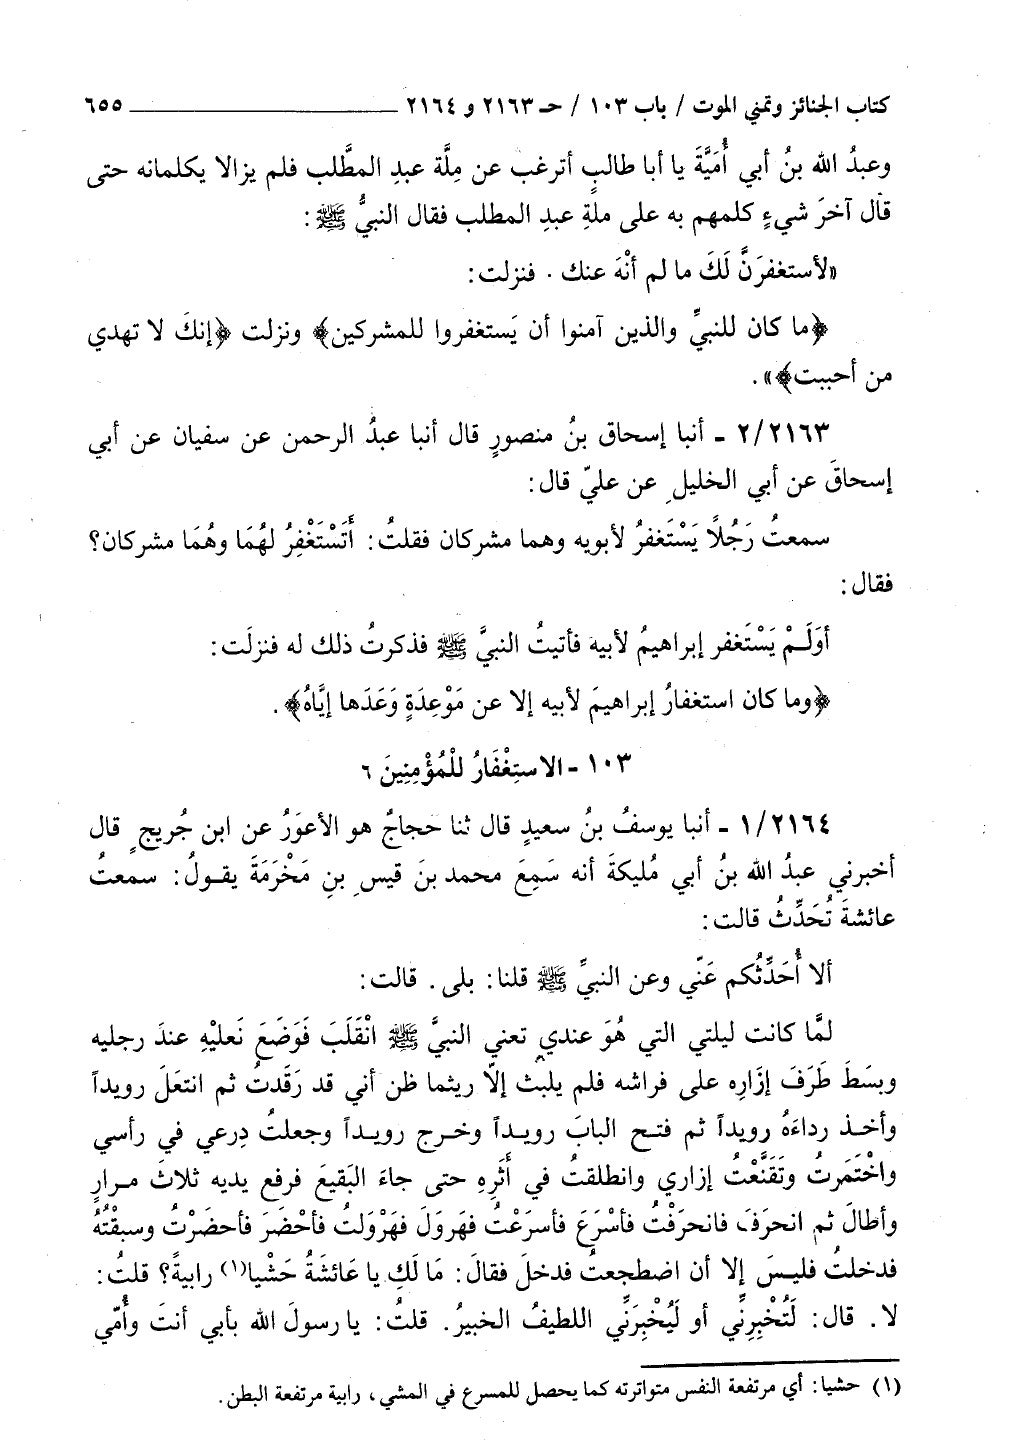 كتاب الجنائز وتمني الموت / باب ١٠٣ / حـ ٢١٦٣ و ٢١٦٤ ـــــــــــــــــــــ ٦٥٥
وعبدُ الله بنُ أبي أُمَيَّةَ يا أبا طالبٍ أترغب عن مِلَّة عبدِ المطَّلب فلم يزالا يكلمانه حتى
قال آخرَ شيءٍ كلمهم به على ملةِ عبدِ المطلب فقال النبيُّ ﷺ:
«لأستغفرَنَّ لَكَ ما لم أنْهَ عنك . فنزلت:
﴿ما كان للنبيِّ والذين آمنوا أن يَستغفروا للمشركين﴾ ونزلت ﴿إنكَ لا تهدي
من أحببت﴾» .
٢/٢١٦٣ ـ أنبا إسحاق بنُ منصورٍ قال أنبا عبدُ الرحمن عن سفيان عن أبي
إسحاقَ عن أبي الخليلِ عن عليّ قال:
سمعتُ رَجُلاً يَسْتَغفرُ لأبويه وهما مشركان فقلتُ: أَتَسْتَغْفِرُ لهُمَا وهُمَا مشركان؟
فقال:
أوَلَـمْ يَسْتَغفر إبراهيمُ لأبيه فأتيتُ النبيَّ ﷺ فذكرتُ ذلك له فنزلَت:
﴿وما كان استغفارُ إبراهيمَ لأبيه إلا عن مَوْعِدَةٍ وَعَدَها إيَّاهُ﴾ .
١٠٣ - الاستِغْفَارُ للْمُؤْمِنِينَ ٦
١/٢١٦٤ ـ أنبا يوسفُ بنُ سعيدٍ قال ثنا حجاجٌ هو الأعوَرُ عن ابن جُريجٍ قال
أخبرني عبدُ الله بنُ أبي مُليكةَ أنه سَمِعَ محمد بنَ قيسِ بنِ مَخْرَمَةَ يقـولُ: سمعتُ
عائشةَ تُحَدِّثُ قالت:
ألا أُحَدِّثُكم عَنّي وعن النبيِّ ﷺ قلنا: بلى. قالت:
لمَّا كانت ليلتي التي هُوَ عندي تعني النبيَّ ﷺ انْقَلَبَ فَوَضَعَ نَعليْهِ عندَ رجليه
وبسَطَ طَرَفَ إزَارِه على فراشه فلم يلبث إلّا ريثما ظن أني قد رَقَدتُ ثم انتعَلَ رويداً
وأخـذ رداءَهُ رويداً ثم فتـح البابَ رويـداً وخـرج رويـداً وجعلتُ دِرعي في رأسي
واخْتَمَرتُ وتَقَنَّعْتُ إزاري وانطلقتُ في أَثَرِهِ حتى جاءَ البَقيعَ فرفع يديه ثلاثَ مـرارٍ
وأطالَ ثم انحرَفَ فانحرَفْتُ فأسْرَعَ فأسرَعْتُ فهَروَلَ فهَرْوَلتُ فأحْضَرَ فأحضَرْتُ وسبقْتُهُ
فدخلتُ فليسَ إلا أن اضطجعتُ فدخلَ فقالَ: مَا لَكِ يا عَائشَةُ حَشْيا(١) رابيةً؟ قلتُ:
لا. قال: لَتُخْبِرِنِّي أو لَيُخْبِرَنِّي اللطيفُ الخبيرُ. قلتُ: يا رسولَ الله بأبي أنتَ وأُمّي
(١) حشيا: أي مرتفعة النفس متواترته كما يحصل للمسرع في المشي، رابية مرتفعة البطن.